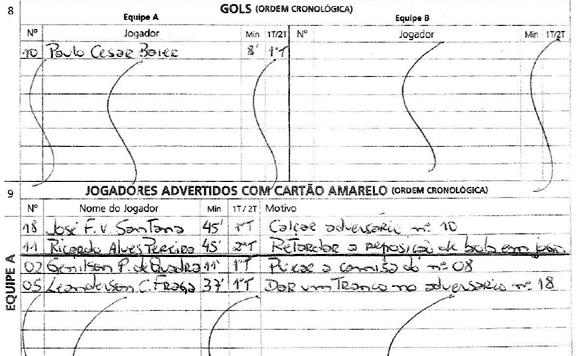 8 GOLS (ORDEM CRONOLÓGICA)
Equipe A Equipe B
Nº Jogador Min 1T/2T Nº Jogador Min 1T/2T
10 Paulo Cesar Baier 8' 1ºT
9 JOGADORES ADVERTIDOS COM CARTÃO AMARELO (ORDEM CRONOLÓGICA)
Nº Nome do Jogador Min 1T/2T Motivo
EQUIPE A
18 José F. V. Santana 45' 1ºT Calçar adversario nº 10
11 Ricardo Alves Pereira 45' 2ºT Retardar a reposição de bola em jogo
02 P. de Quadra 11' 1ºT a camisa do nº 08
05 Leanderson C. Fraga 37' 1ºT Dar um Tranco no adversario nº 18